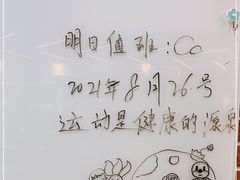 明日值班：Cc
2021年8月26号
运动是健康的源泉